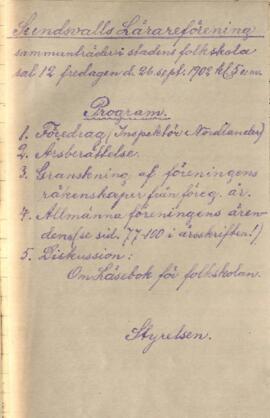 Sundsvalls Lärareförening
sammanträder i stadens folkskola
sal 12 fredagen d. 26 sept. 1902 kl 5 e.m.
Program.
1. Föredrag (Inspektör Nordlander)
2. Årsberättelse.
3. Granskning af föreningens
räkenskaper från föreg. år.
4. Allmänna föreningens ären-
dens (se sid. 77-100 i årsskriften!)
5. Diskussion:
Om Läsebok för folkskolan.
Styrelsen.